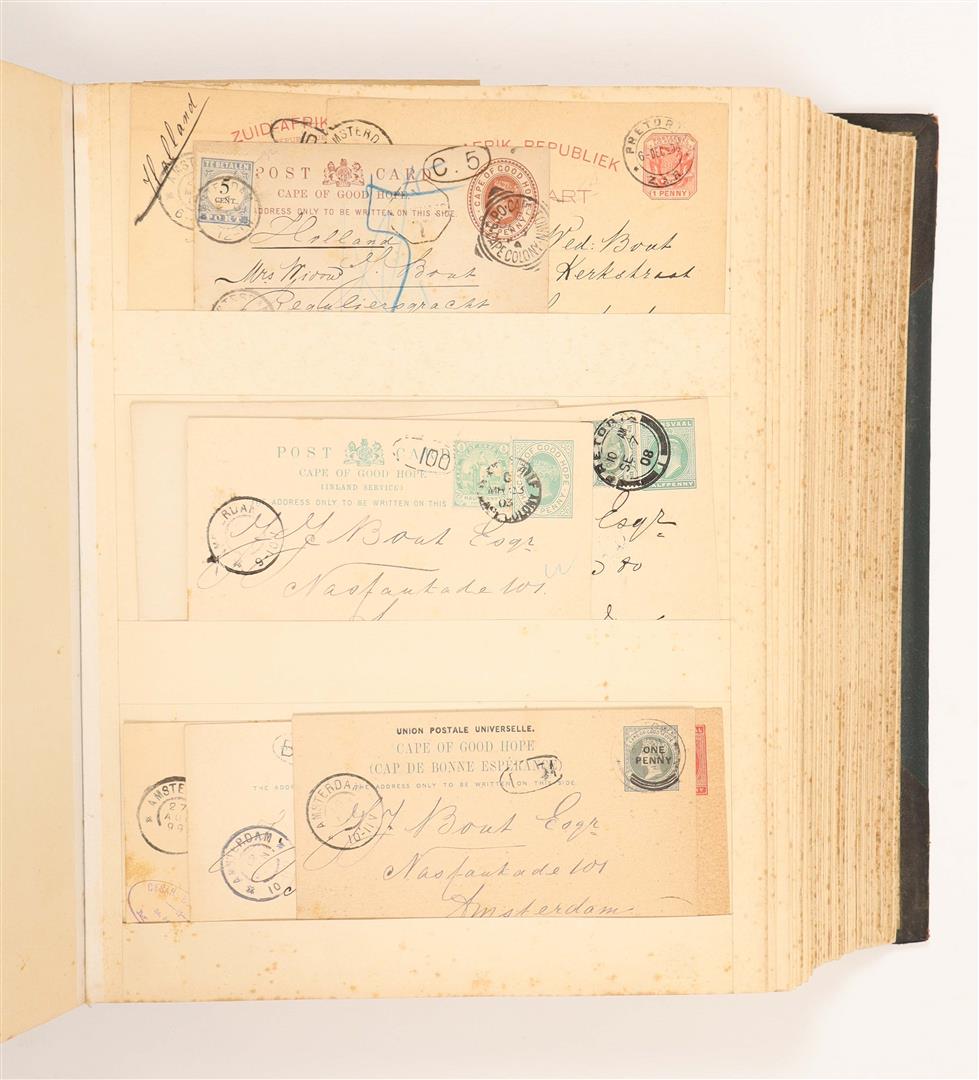 Holland
ZUID-AFRIK
AFRIK REPUBLIEK
PRETOR
6-DEC
Z.A.R.
1 PENNY
AMSTERD
TE BETALEN
5
CENT.
PORT
POST CARD
CAPE OF GOOD HOPE.
THE ADDRESS ONLY TO BE WRITTEN ON THIS SIDE
C. 5
CAPE OF GOOD HOPE
CAPE COLONY
KAART
Holland
Mrs Widow J. Bout
Reguliersgracht
Wed: Bout
Kerkstraat
POST CARD
CAPE OF GOOD HOPE
(INLAND SERVICE)
THE ADDRESS ONLY TO BE WRITTEN ON THIS
100
OF GOOD HOPE
PENNY
COLONY
03
PRETORIA
10
SE
08
TRANSVAAL
HALFPENNY
9-10
Bout Esqr
Nassaukade 101.
Esqr
80
UNION POSTALE UNIVERSELLE.
CAPE OF GOOD HOPE
(CAP DE BONNE ESPÉRANCE)
THE ADDRESS ONLY TO BE WRITTEN ON THIS SIDE
ONE
PENNY
AMSTERDAM
10-11V
THE ADDR
AMSTER
27
AU
99
AMSTERDAM
10
Bout Esqr
Nassaukade 101
Amsterdam